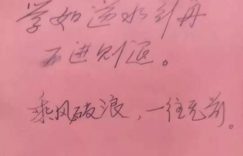 学如逆水行舟
不进则退。
乘风破浪，一往无前。